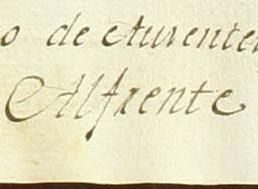 o de Aurente
Alfrente